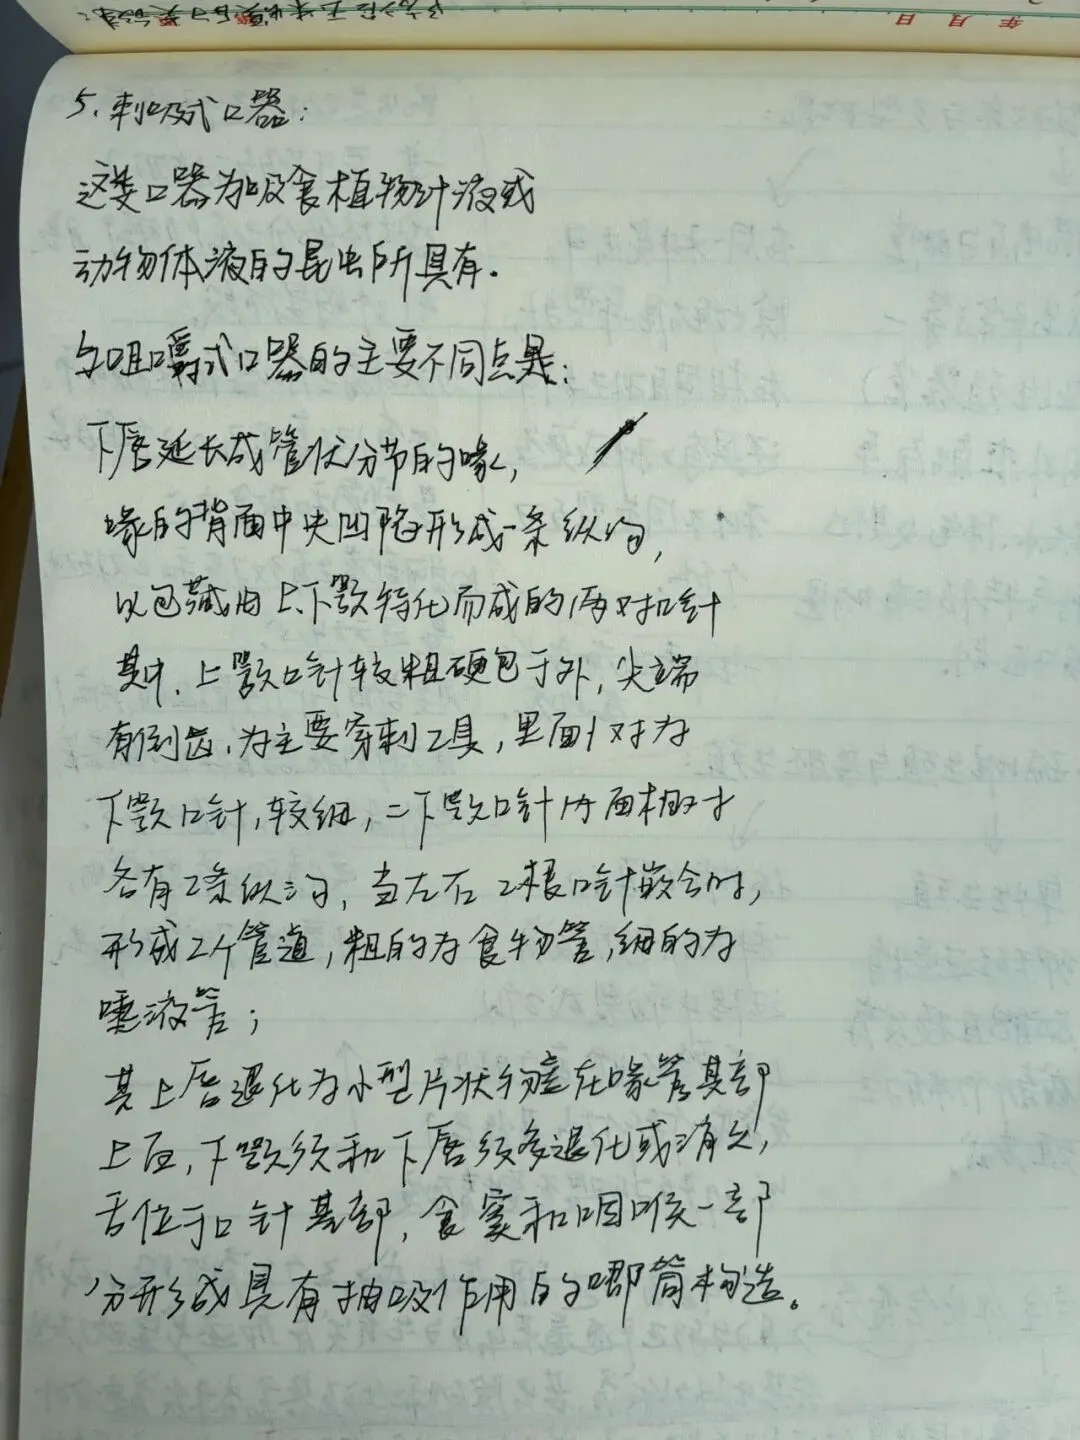 年 月 日
5. 刺吸式口器:
这类口器为吸食植物汁液或
动物体液的昆虫所具有.
与咀嚼式口器的主要不同点是:
下唇延长成管状分节的喙,
喙的背面中央凹陷形成一条纵沟,
以包藏由上.下颚特化而成的两对口针
其中.上颚口针较粗硬包于外,尖端
有倒齿.为主要穿刺工具,里面1对为
下颚口针,较细,二下颚口针内面相对
各有2条纵沟,当左右2根口针嵌合时,
形成2个管道,粗的为食物管,细的为
唾液管;
其上唇退化为小型片状物盖在喙管基部
上面,下颚须和下唇须多退化或消失,
舌位于口针基部,食窦和咽喉一部
分形成具有抽吸作用的唧筒构造。